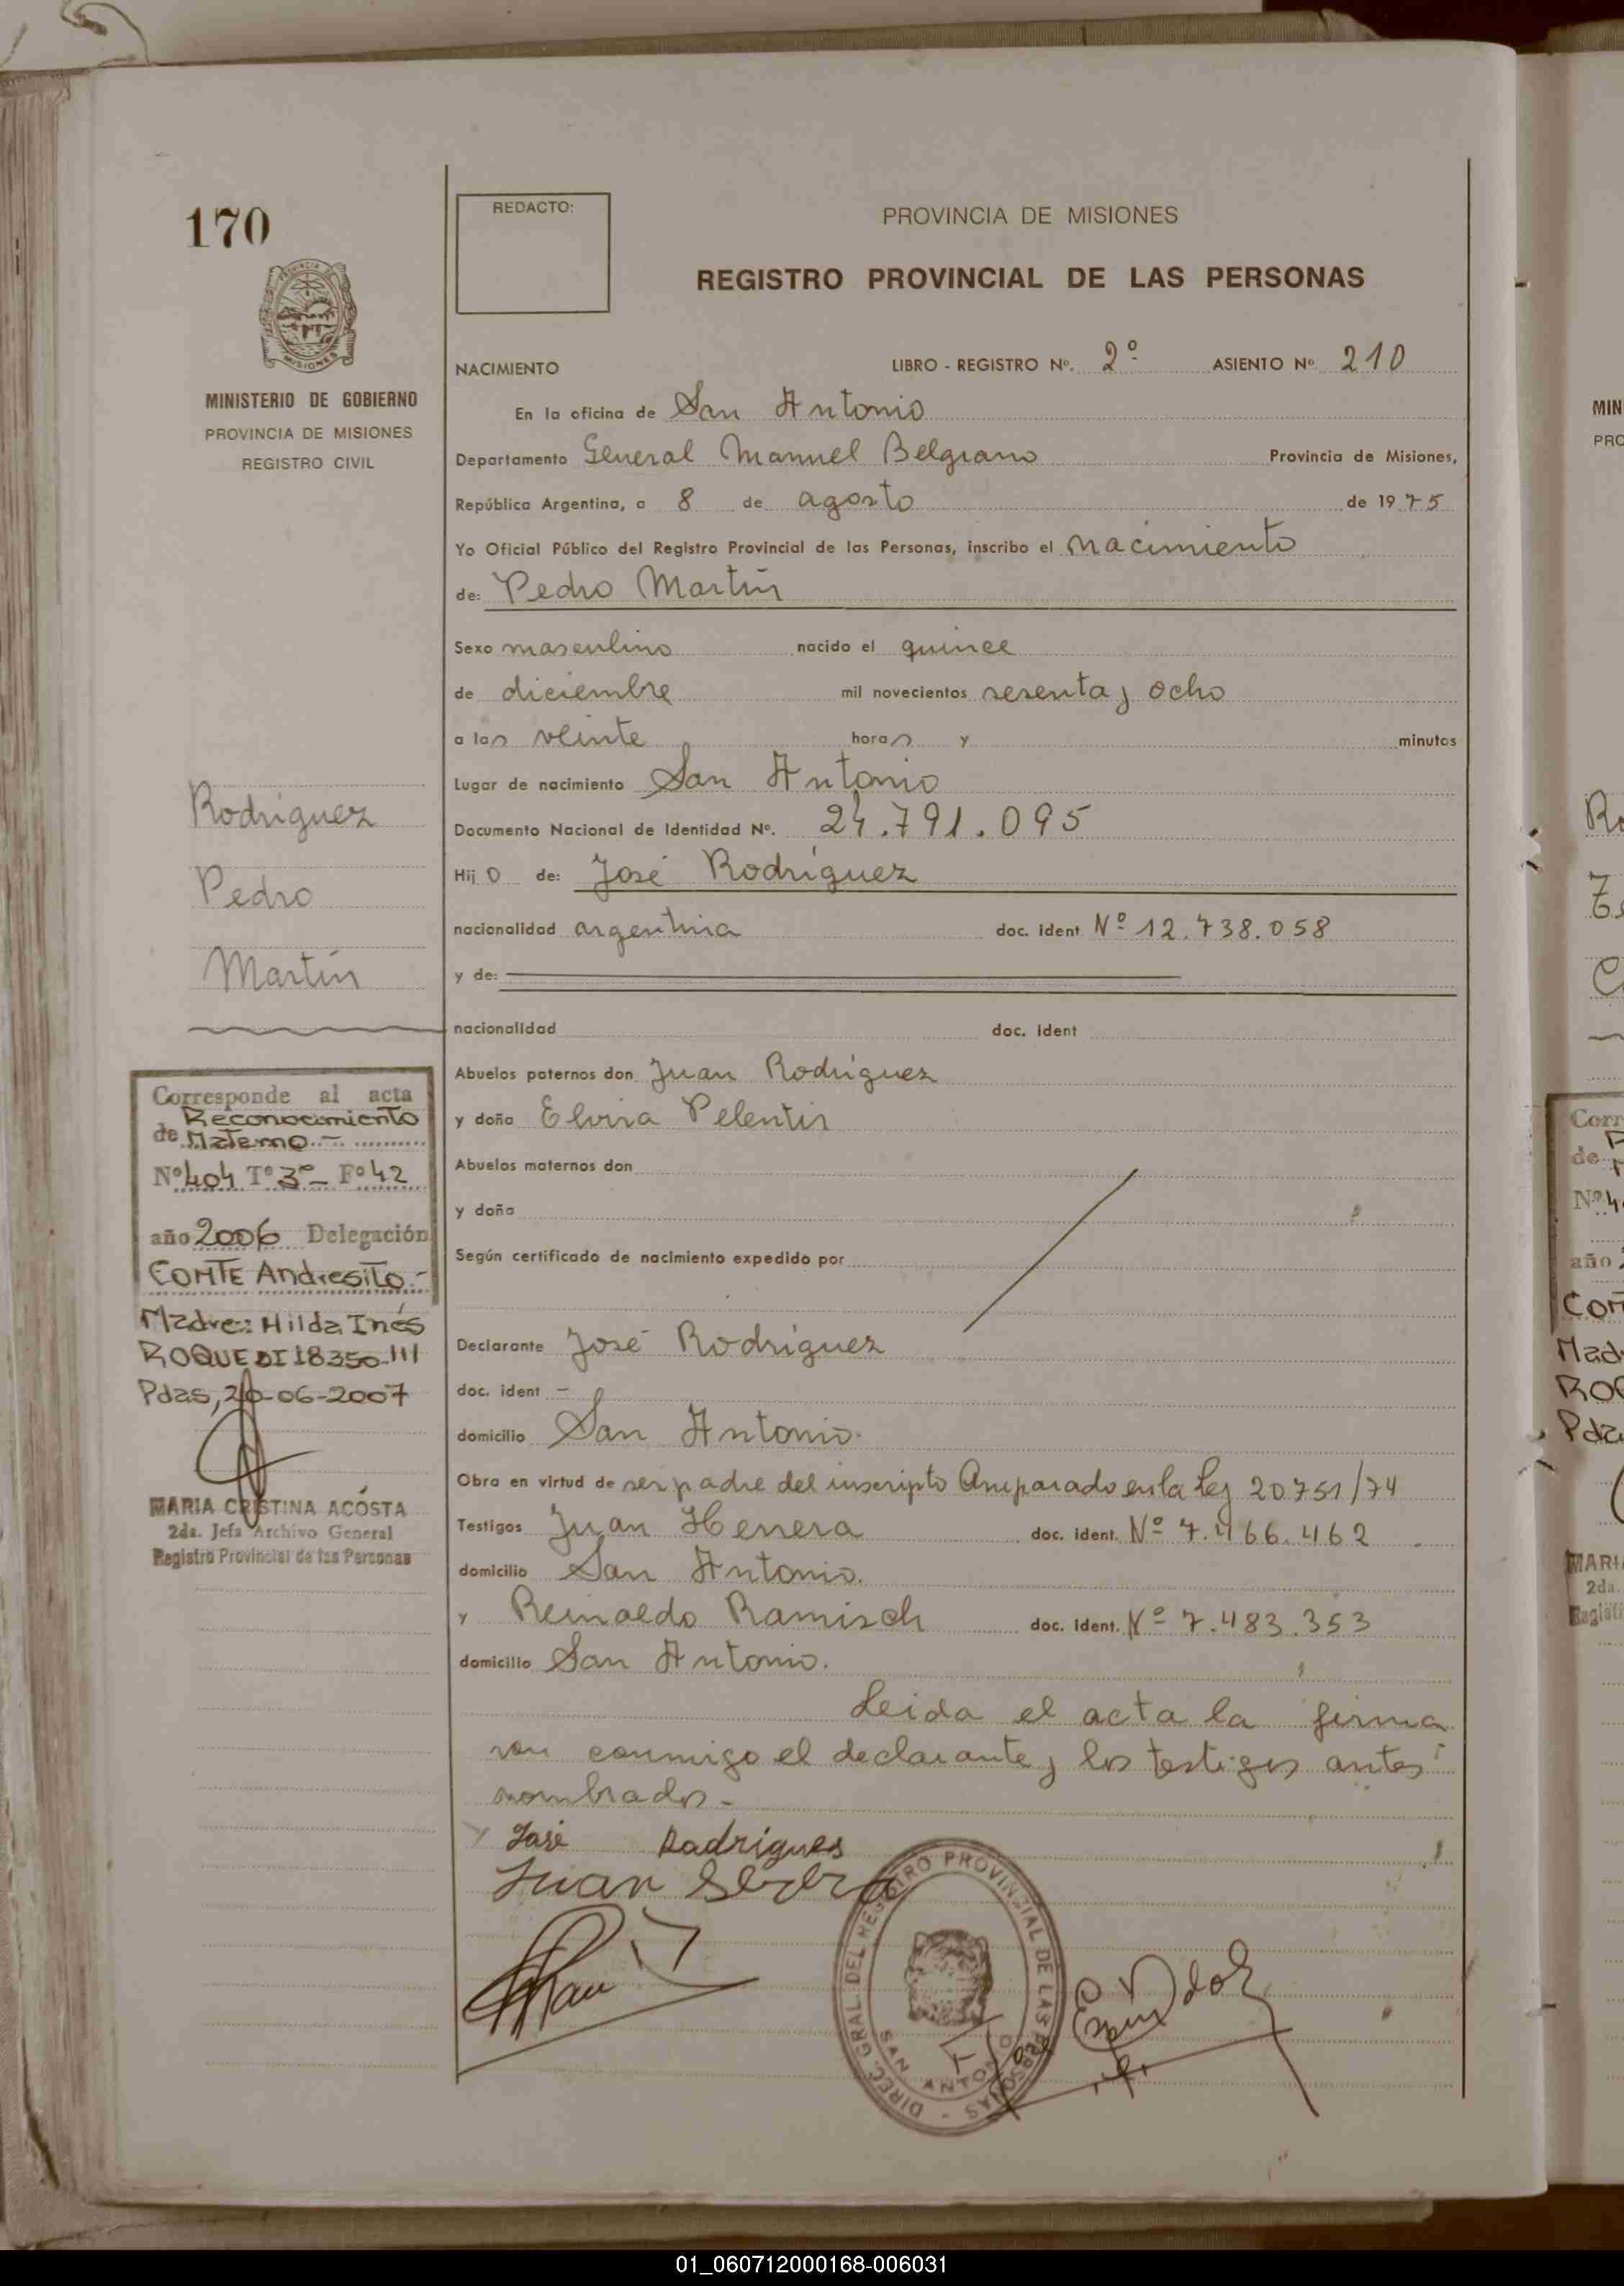 170
MINISTERIO DE GOBIERNO
PROVINCIA DE MISIONES
REGISTRO CIVIL
REDACTO:
PROVINCIA DE MISIONES
REGISTRO PROVINCIAL DE LAS PERSONAS
NACIMIENTO LIBRO - REGISTRO Nº. 2º ASIENTO Nº 210
En la oficina de San Antonio
Departamento General Manuel Belgrano Provincia de Misiones,
República Argentina, a 8 de agosto de 1975
Yo Oficial Público del Registro Provincial de las Personas, inscribo el nacimiento
de: Pedro Martín
Sexo masculino nacido el quince
de diciembre mil novecientos sesenta y ocho
a las veinte horas y minutos
Lugar de nacimiento San Antonio
Documento Nacional de Identidad Nº. 24.791.095
Hijo de: José Rodríguez
nacionalidad argentina doc. ident Nº 12.738.058
y de:
nacionalidad doc. ident
Abuelos paternos don Juan Rodríguez
y doña Elvira Pelentir
Abuelos maternos don
y doña
Según certificado de nacimiento expedido por
Declarante José Rodríguez
doc. ident -
domicilio San Antonio.
Obra en virtud de ser padre del inscripto Amparado en la Ley 20751/74
Testigos Juan Herrera doc. ident. Nº 7.466.462
domicilio San Antonio.
y Reinaldo Ramisch doc. ident. Nº 7.483.353
domicilio San Antonio.
Leida el acta la firma
ron conmigo el declarante y los testigos antes
nombrados.-
José Rodrigues
Juan
DIREC. GRAL. DEL REGISTRO PROVINCIAL DE LAS PERSONAS -
SAN ANTONIO
Rodríguez
Pedro
Martín
Corresponde al acta
de Reconocimiento
Materno.-
Nº 404 Tº 3º- Fº 42
año 2006 Delegación
COMTE Andresito.-
Madre: Hilda Inés
ROQUE DI 18350.111
Pdas, 20-06-2007
MARIA CRISTINA ACOSTA
2da. Jefa Archivo General
Registro Provincial de las Personas
01_060712000168-006031